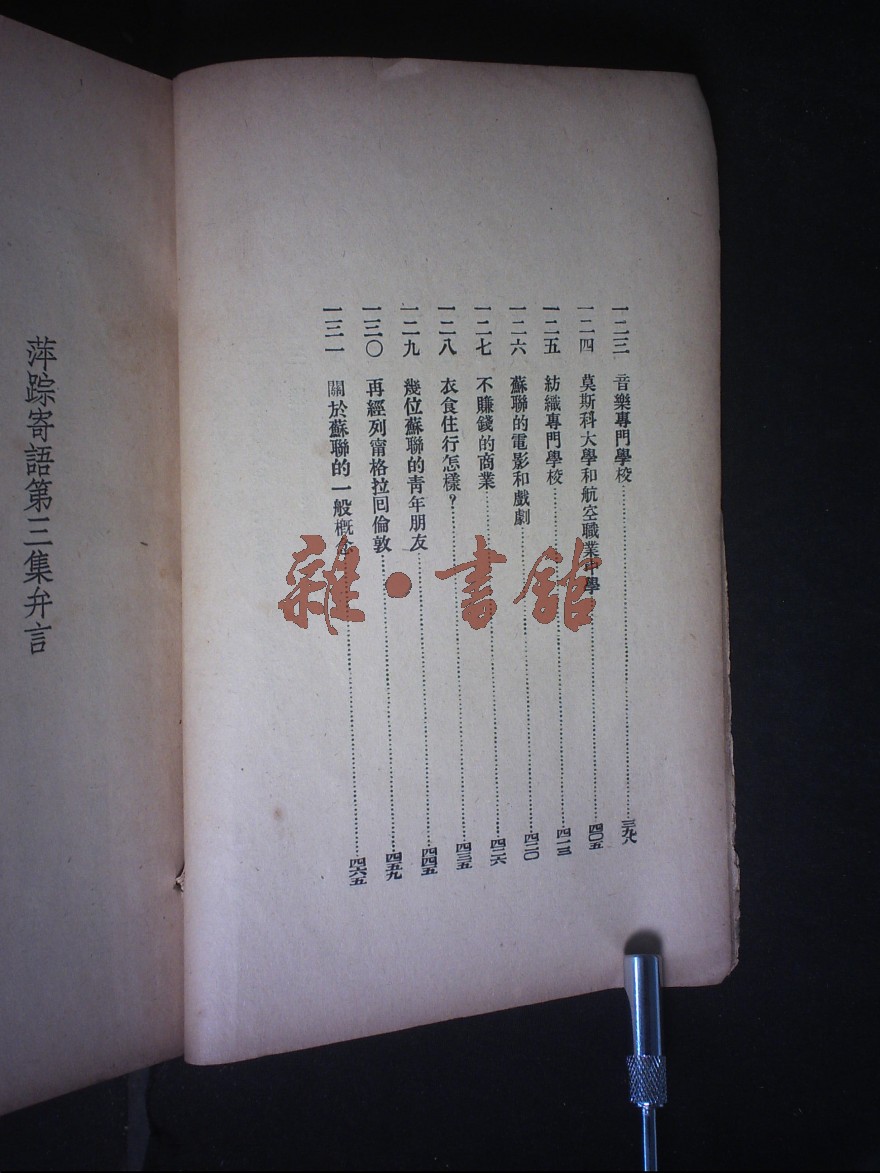 一二三　音樂專門學校……三九八
一二四　莫斯科大學和航空職業中學……四〇五
一二五　紡織專門學校……四一三
一二六　蘇聯的電影和戲劇……四二〇
一二七　不賺錢的商業……四二六
一二八　衣食住行怎樣？……四三五
一二九　幾位蘇聯的青年朋友……四四五
一三〇　再經列甯格拉囘倫敦……四五九
一三一　關於蘇聯的一般概念……四六五
萍踪寄語第三集弁言
雜·書館